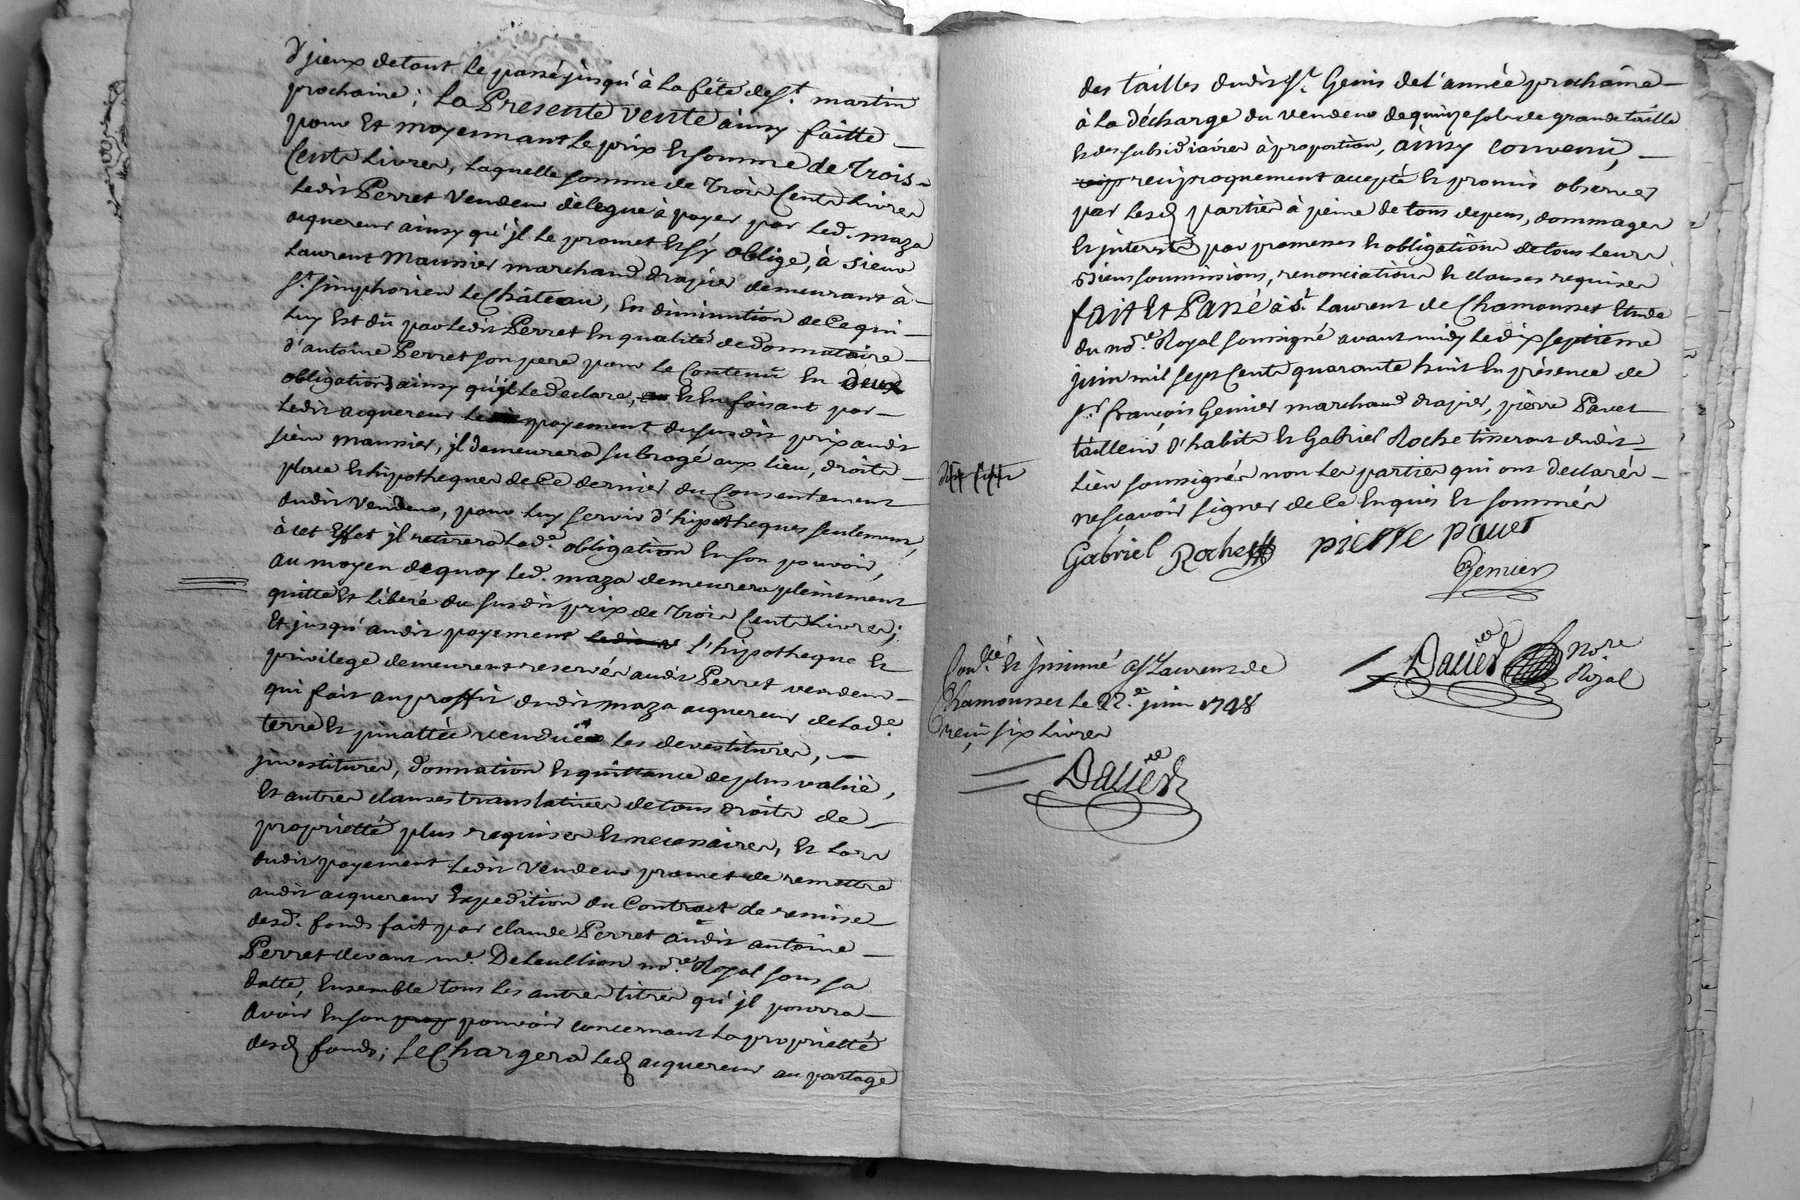 d'jceux detout le passé jusqu'à la fête de St. martin
prochaine; La Presente vente ainsy faitte
pour Et moyennant le prix Et somme de Trois
Cents Livres, laquelle somme de Trois Cents Livres
ledit Perret vendeur délegue à payer par led. maza
aquereur ainsy qu'jl le promet Et s'y oblige, à sieur
Laurent maunier marchand drapier demeurant à
St. simphorien le Château, En diminution de Ce qui
luy Est dû par ledit Perret En qualité de donnataire
d'antoine Perret son pere pour le Contenû En deux
obligations ainsy qu'jl le declare, Et En faisant par
ledit acquereur le payement du susdit prix audit
sieur maunier, jl demeurera subrogé aux lieu, droits
place Et hypotheques de Ce dernier du Consentement
dudit vendeur, pour luy servir d'hipotheques seulement,
à cet Effet jl retirera lade. obligation En son pouvoir,
au moyen dequoy led. maza demeurera pleinement
quitte Et liberé du susdit prix de Trois Cents Livres;
Et jusqu'audit payement l'hipotheque Et
privilege demeurent reservés audit Perret vendeur
qui fait au proffit dudit maza acquereur de lade.
terre Et pinattée vendues les devestitures,
jnvestitures, donnation Et quittance de plus valüe,
Et autres clauses translatives de tous droits de
proprietté plus requises Et necessaires, Et lors
dudit payement ledit vendeur promet de remettre
audit acquereur Expedition du Contract de remise
desd. fonds fait par claude Perret audit antoine
Perret devant me. Deleullion nore. Royal sous sa
datte, Ensemble tous les autres titres qu'jl pourra
avoir En son pouvoir concernant la proprietté
desd fonds; se Chargera led acquereur au partage
des tailles dudit St. Genis de l'année prochaine
à la décharge du vendeur de quinze sols de grande taille
Et des subsidiaires à proportion, ainsy convenû,
reciproquement accepté Et promis observer
par lesd parties à peine de tous depens, dommages
Et jnterests par promesses Et obligations de tous leurs
Biens soumissions, renonciations Et clauses requises
fait Et Passé à St. Laurent de Chamousset Etude
du nore. Royal soussigné avant midy le dix septieme
juin mil sept Cents quarante huit En présence de
Sr. françois Genier marchand drapier, pierre Pavet
tailleur d'habits Et Gabriel Roche tisserant dudit
Lieu soussignés non les parties qui ont declarés
ne sçavoir signer de Ce Enquis Et sommés
Gabriel Roche pierre pavet
Genier
Daviet Nore
Royal
Conlé. Et jnsinué à St Laurent de
Chamousset le 22e. juin 1748
reçû six livres
Daviet